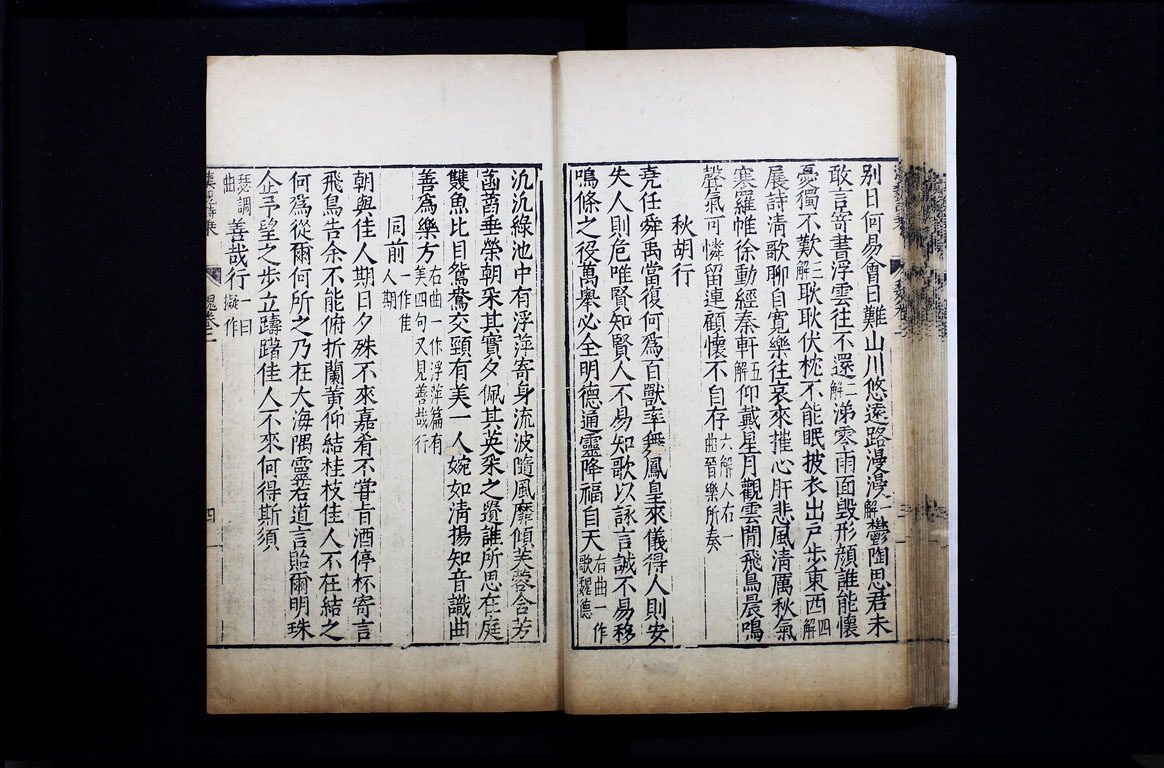 別日何易會日難山川悠遠路漫漫一解鬱陶思君未
敢言寄書浮雲往不還二解涕零雨面毀形顏誰能懷
憂獨不歎三解耿耿伏枕不能眠披衣出戶步東西四解
展詩清歌聊自寬樂往哀來摧心肝悲風清厲秋氣
寒羅帷徐動經秦軒五解仰戴星月觀雲間飛鳥晨鳴
聲氣可憐留連顧懷不自存六解人右一曲晉樂所奏
秋胡行
堯任舜禹當復何為百獸率舞鳳皇來儀得人則安
失人則危唯賢知賢人不易知歌以詠言誠不易移
鳴條之役萬舉必全明德通靈降福自天右曲一作歌魏德
汎汎綠池中有浮萍寄身流波隨風靡傾芙蓉含芳
菡萏垂榮朝采其實夕佩其英采之遺誰所思在庭
雙魚比目鴛鴦交頸有美一人婉如清揚知音識曲
善為樂方右曲一作浮萍篇有美四句又見善哉行
同前一作佳人期
朝與佳人期日夕殊不來嘉肴不嘗旨酒停杯寄言
飛鳥告余不能俯折蘭英仰結桂枝佳人不在結之
何為從爾何所之乃在大海隅靈若道言貽爾明珠
企予望之步立躊躇佳人不來何得斯須
瑟調曲善哉行一曰擬作
魏卷二
四